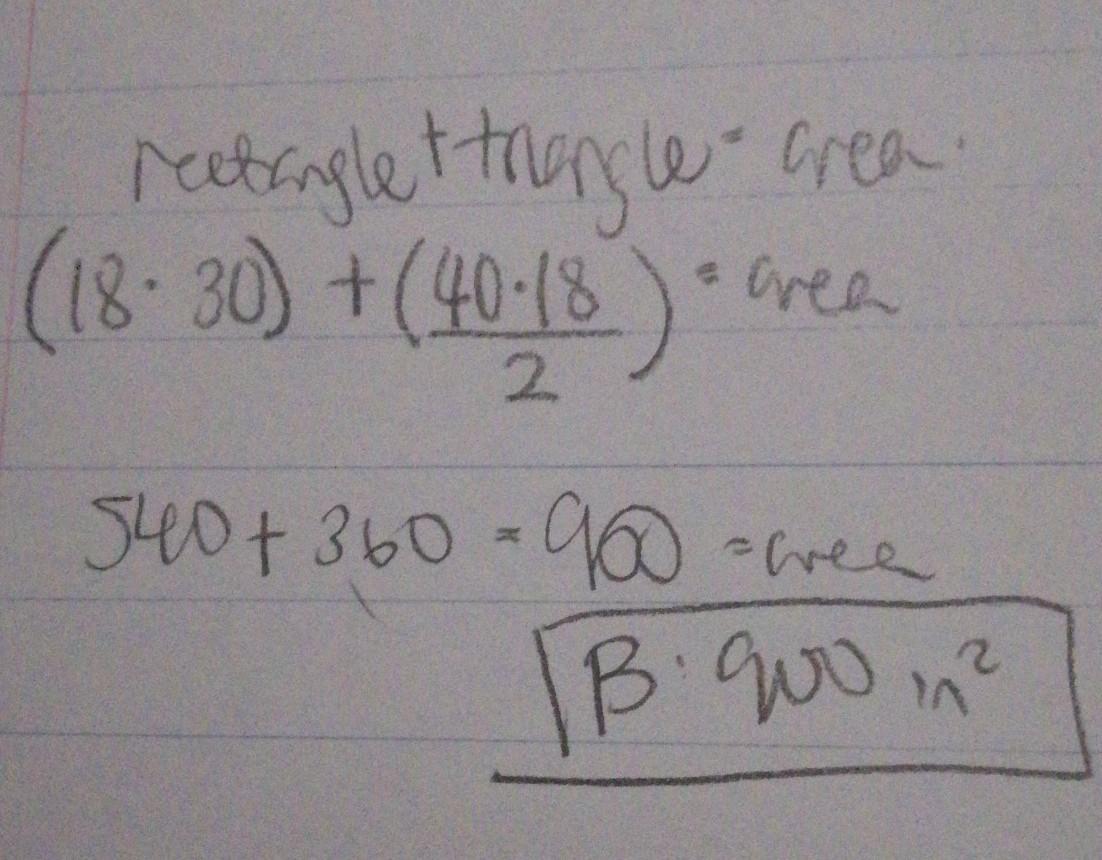 rectangle + triangle = area.
(18 · 30) + (40·18 / 2) = area
540 + 360 = 900 = area
B: 900 in²